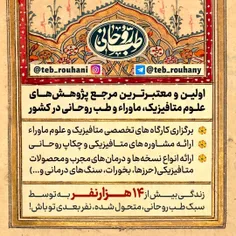 طب روحانی
@teb_rouhani @teb_rouhany
اولین و معتبرترین مرجع پژوهش‌های
علوم متافیزیک، ماوراء و طب روحانی در کشور
برگزاری کارگاه های تخصصی متافیزیک و علوم ماوراء
ارائه مشاوره های متافیزیکی و چکاپ روحانی
ارائه انواع نسخه‌ها و درمان‌های مجرب و محصولات
متافیزیکی(حرزها، بخورات، سنگ‌های درمانی و...)
زندگی بیش از ۱۴ هزار نفر به توسط
سبک طب روحانی، متحول شده، نفر بعدی تو باش!